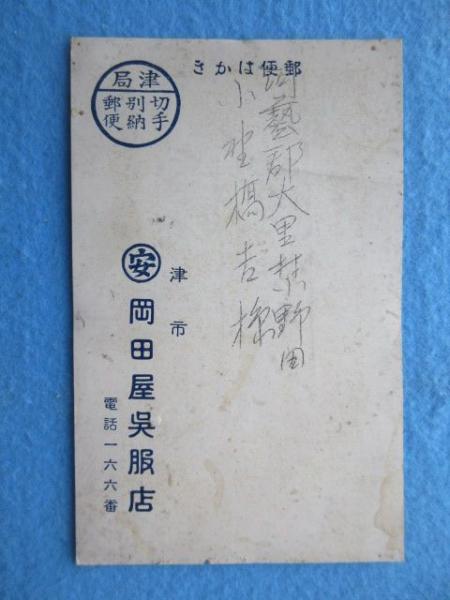 郵便はかき
津局
切手
別納
郵便
河藝郡大里村野田
橋吉様
津市
安
岡田屋呉服店
電話一六六番